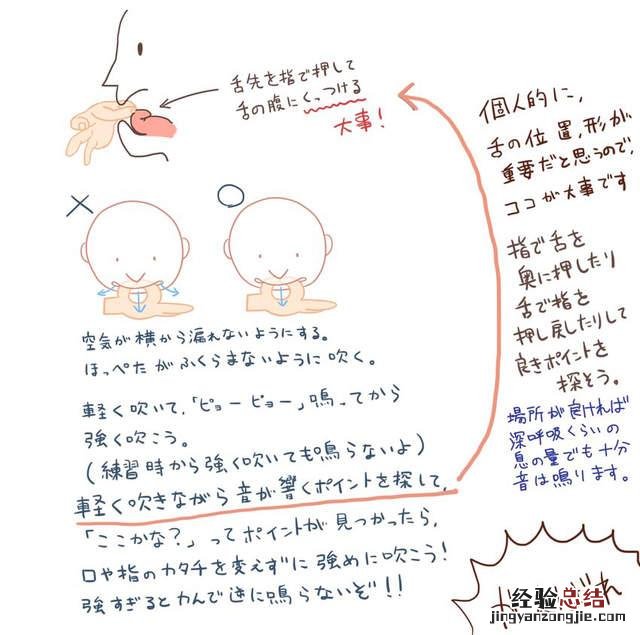 舌先を指で押して
舌の腹にくっつける
大事!
個人的に、
舌の位置、形が
重要だと思うので、
ココが大事です
指で舌を
奥に押したり
舌で指を
押し戻したりして
良きポイントを
探そう。
場所が良ければ
深呼吸くらいの
息の量でも十分
音は鳴ります。
空気が横から漏れないようにする。
ほっぺたがふくらまないように吹く。
軽く吹いて、「ピョーピョー」鳴ってから
強く吹こう。
(練習時から強く吹いても鳴らないよ)
軽く吹きながら音が響くポイントを探して、
「ここかな?」ってポイントが見つかったら、
口や指のカタチを変えずに強めに吹こう!
強すぎると力んで逆に鳴らないぞ!!
经验总结
jingyanzongjie.com